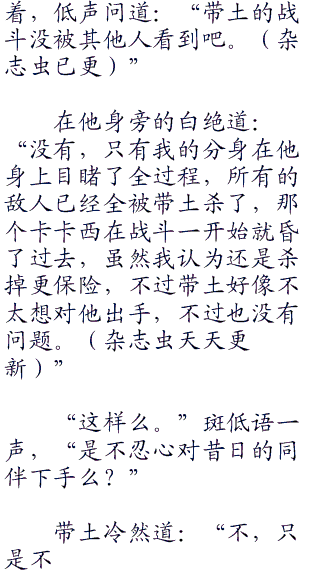 着，低声问道：“带土的战
斗没被其他人看到吧。（杂
志虫已更）”
在他身旁的白绝道：
“没有，只有我的分身在他
身上目睹了全过程，所有的
敌人已经全被带土杀了，那
个卡卡西在战斗一开始就昏
了过去，虽然我认为还是杀
掉更保险，不过带土好像不
太想对他出手，不过也没有
问题。（杂志虫天天更
新）”
“这样么。”斑低语一
声，“是不忍心对昔日的同
伴下手么？”
带土冷然道：“不，只
是不